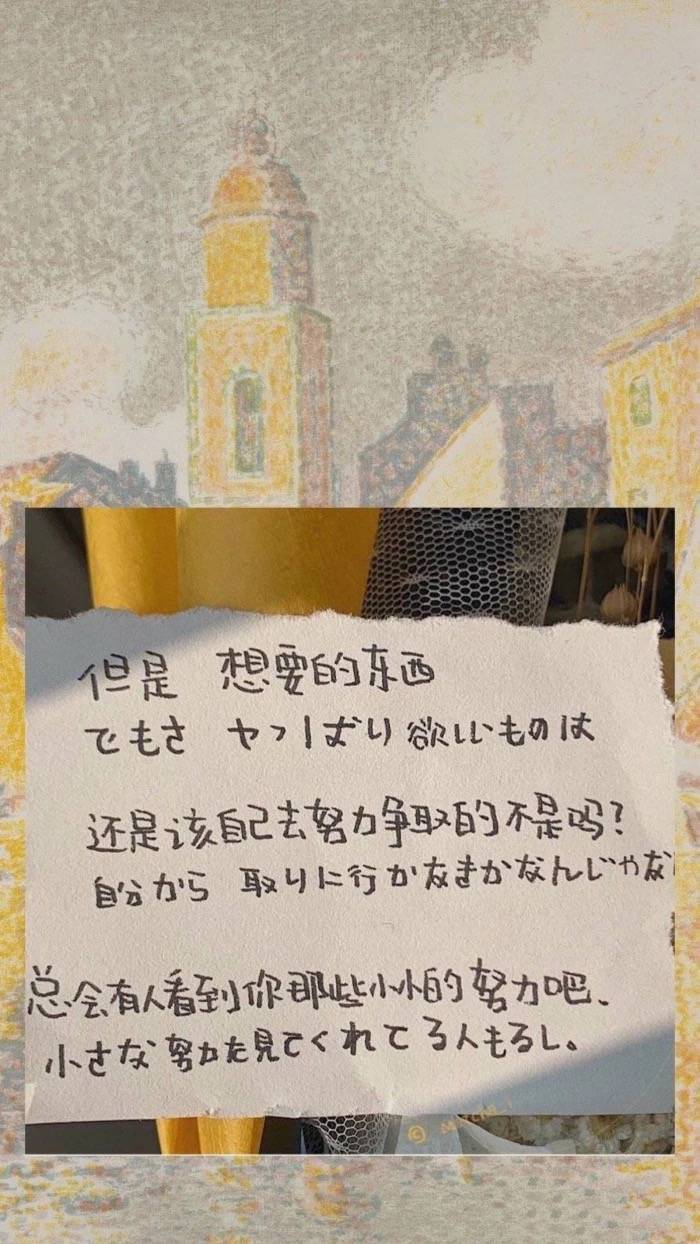 但是 想要的东西
でもさ ヤっぱり欲しいものは
还是该自己去努力争取的不是吗?
自分から 取りに行かなきかなんじゃな
总会有人看到你那些小小的努力吧、
小さな努力を見てくれてる人もるし。
©